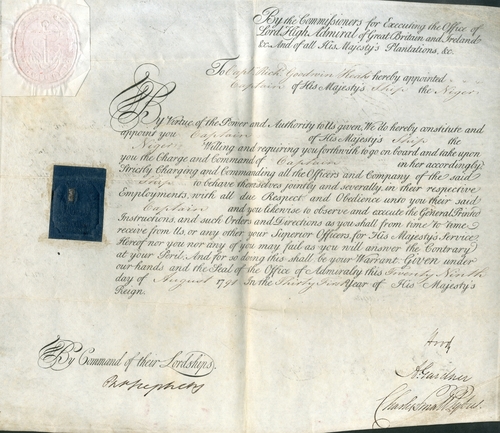 By the Commissioners for Executing the Office of
Lord High Admiral of Great Britain and Ireland
&c. And of all His Majesty's Plantations, &c.
To Capt. Richd. Goodwin Keats hereby appointed
Captain of His Majesty's Ship the Niger
By Virtue of the Power and Authority to Us given, We do hereby constitute and
appoint you Captain of His Majesty's Ship the
Niger Willing and requiring you forthwith to go on board and take upon
you the Charge and Command of Captain in her accordingly.
Strictly Charging and Commanding all the Officers and Company of the said
Ship to behave themselves jointly and severally, in their respective
Employments, with all due Respect and Obedience unto you their said
Captain and you likewise to observe and execute the General Printed
Instructions, and such Orders and Directions as you shall from time to time
receive from Us, or any other your Superior Officers, for His Majesty's Service
Hereof nor you nor any of you may fail as you will answer the Contrary
at your Peril. And for so doing this shall be your Warrant. Given under
our hands and the Seal of the Office of Admiralty this Twenty Ninth
day of August 1791 In the Thirty First Year of His Majesty's
Reign.
Hood
By Command of their Lordships.
A. Gardner
Php Stephens
Charles Small Pybus.